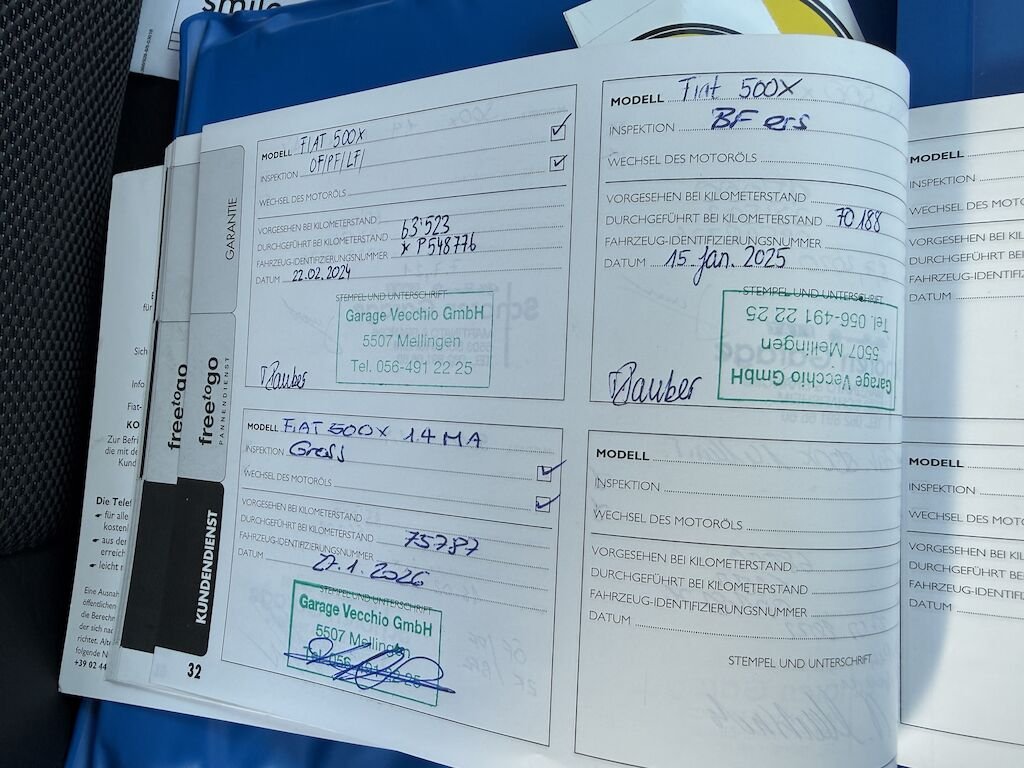 smile
MODELL FIAT 500X
INSPEKTION OF/PF/LF/
WECHSEL DES MOTORÖLS
VORGESEHEN BEI KILOMETERSTAND
DURCHGEFÜHRT BEI KILOMETERSTAND 63'523
FAHRZEUG-IDENTIFIZIERUNGSNUMMER * P548776
DATUM 22.02.2024
STEMPEL UND UNTERSCHRIFT
Garage Vecchio GmbH
5507 Mellingen
Tel. 056-491 22 25
MODELL Fiat 500X
INSPEKTION BF ers
WECHSEL DES MOTORÖLS
VORGESEHEN BEI KILOMETERSTAND
DURCHGEFÜHRT BEI KILOMETERSTAND 70188
FAHRZEUG-IDENTIFIZIERUNGSNUMMER
DATUM 15. Jan. 2025
STEMPEL UND UNTERSCHRIFT
Garage Vecchio GmbH
5507 Mellingen
Tel. 056-491 22 25
MODELL FIAT 500X 1.4 MA
INSPEKTION Gross
WECHSEL DES MOTORÖLS
VORGESEHEN BEI KILOMETERSTAND
DURCHGEFÜHRT BEI KILOMETERSTAND 75787
FAHRZEUG-IDENTIFIZIERUNGSNUMMER
DATUM 27.1.2026
STEMPEL UND UNTERSCHRIFT
Garage Vecchio GmbH
5507 Mellingen
Tel. 056-491 22 25
MODELL
INSPEKTION
WECHSEL DES MOTORÖLS
VORGESEHEN BEI KILOMETERSTAND
DURCHGEFÜHRT BEI KILOMETERSTAND
FAHRZEUG-IDENTIFIZIERUNGSNUMMER
DATUM
STEMPEL UND UNTERSCHRIFT
MODELL
INSPEKTION
WECHSEL DES MOTO
VORGESEHEN BEI KIL
DURCHGEFÜHRT BEI
FAHRZEUG-IDENTIFIZ
DATUM
MODELL
INSPEKTION
WECHSEL DES MOTO
VORGESEHEN BEI KIL
DURCHGEFÜHRT BE
FAHRZEUG-IDENTIFI
DATUM
GARANTIE
freetogo
freetogo
PANNENDIENST
KUNDENDIENST
32
Sich
Info
Fiat-
KO
Zur Befri
die mit de
Kund
Die Telef
für alle
kosten
aus der
erreich
leicht
Eine Ausnah
öffentlichen
die Berechn
der sich nach
richtet. Alte
folgende N
+39 02 44